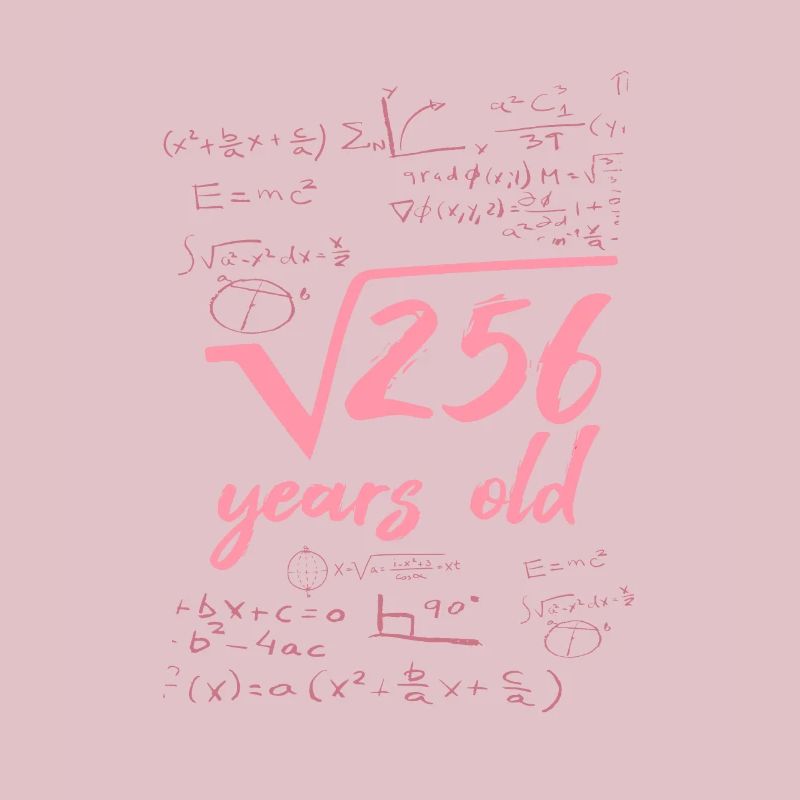 (x²+b/a x+c/a) Σ N Y X a²C₁³/3T (y,
E=mc² gradϕ(x;1) M=√
∇ϕ(x,y,2)=∂ϕ/a²∂d 1+
∫√a²-x² dx=x/2
a b
√256
years old
X=√a=1-x²+3/cosα=xt E=mc²
+bx+c=0 90° ∫√a²-x² dx=x/2
-b²-4ac a b
(x)=a(x²+b/a x+c/a)